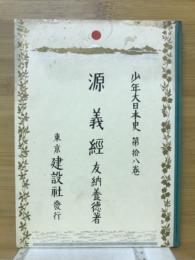 少年大日本史 第拾八巻
源義經 友納養徳著
東京 建設社發行